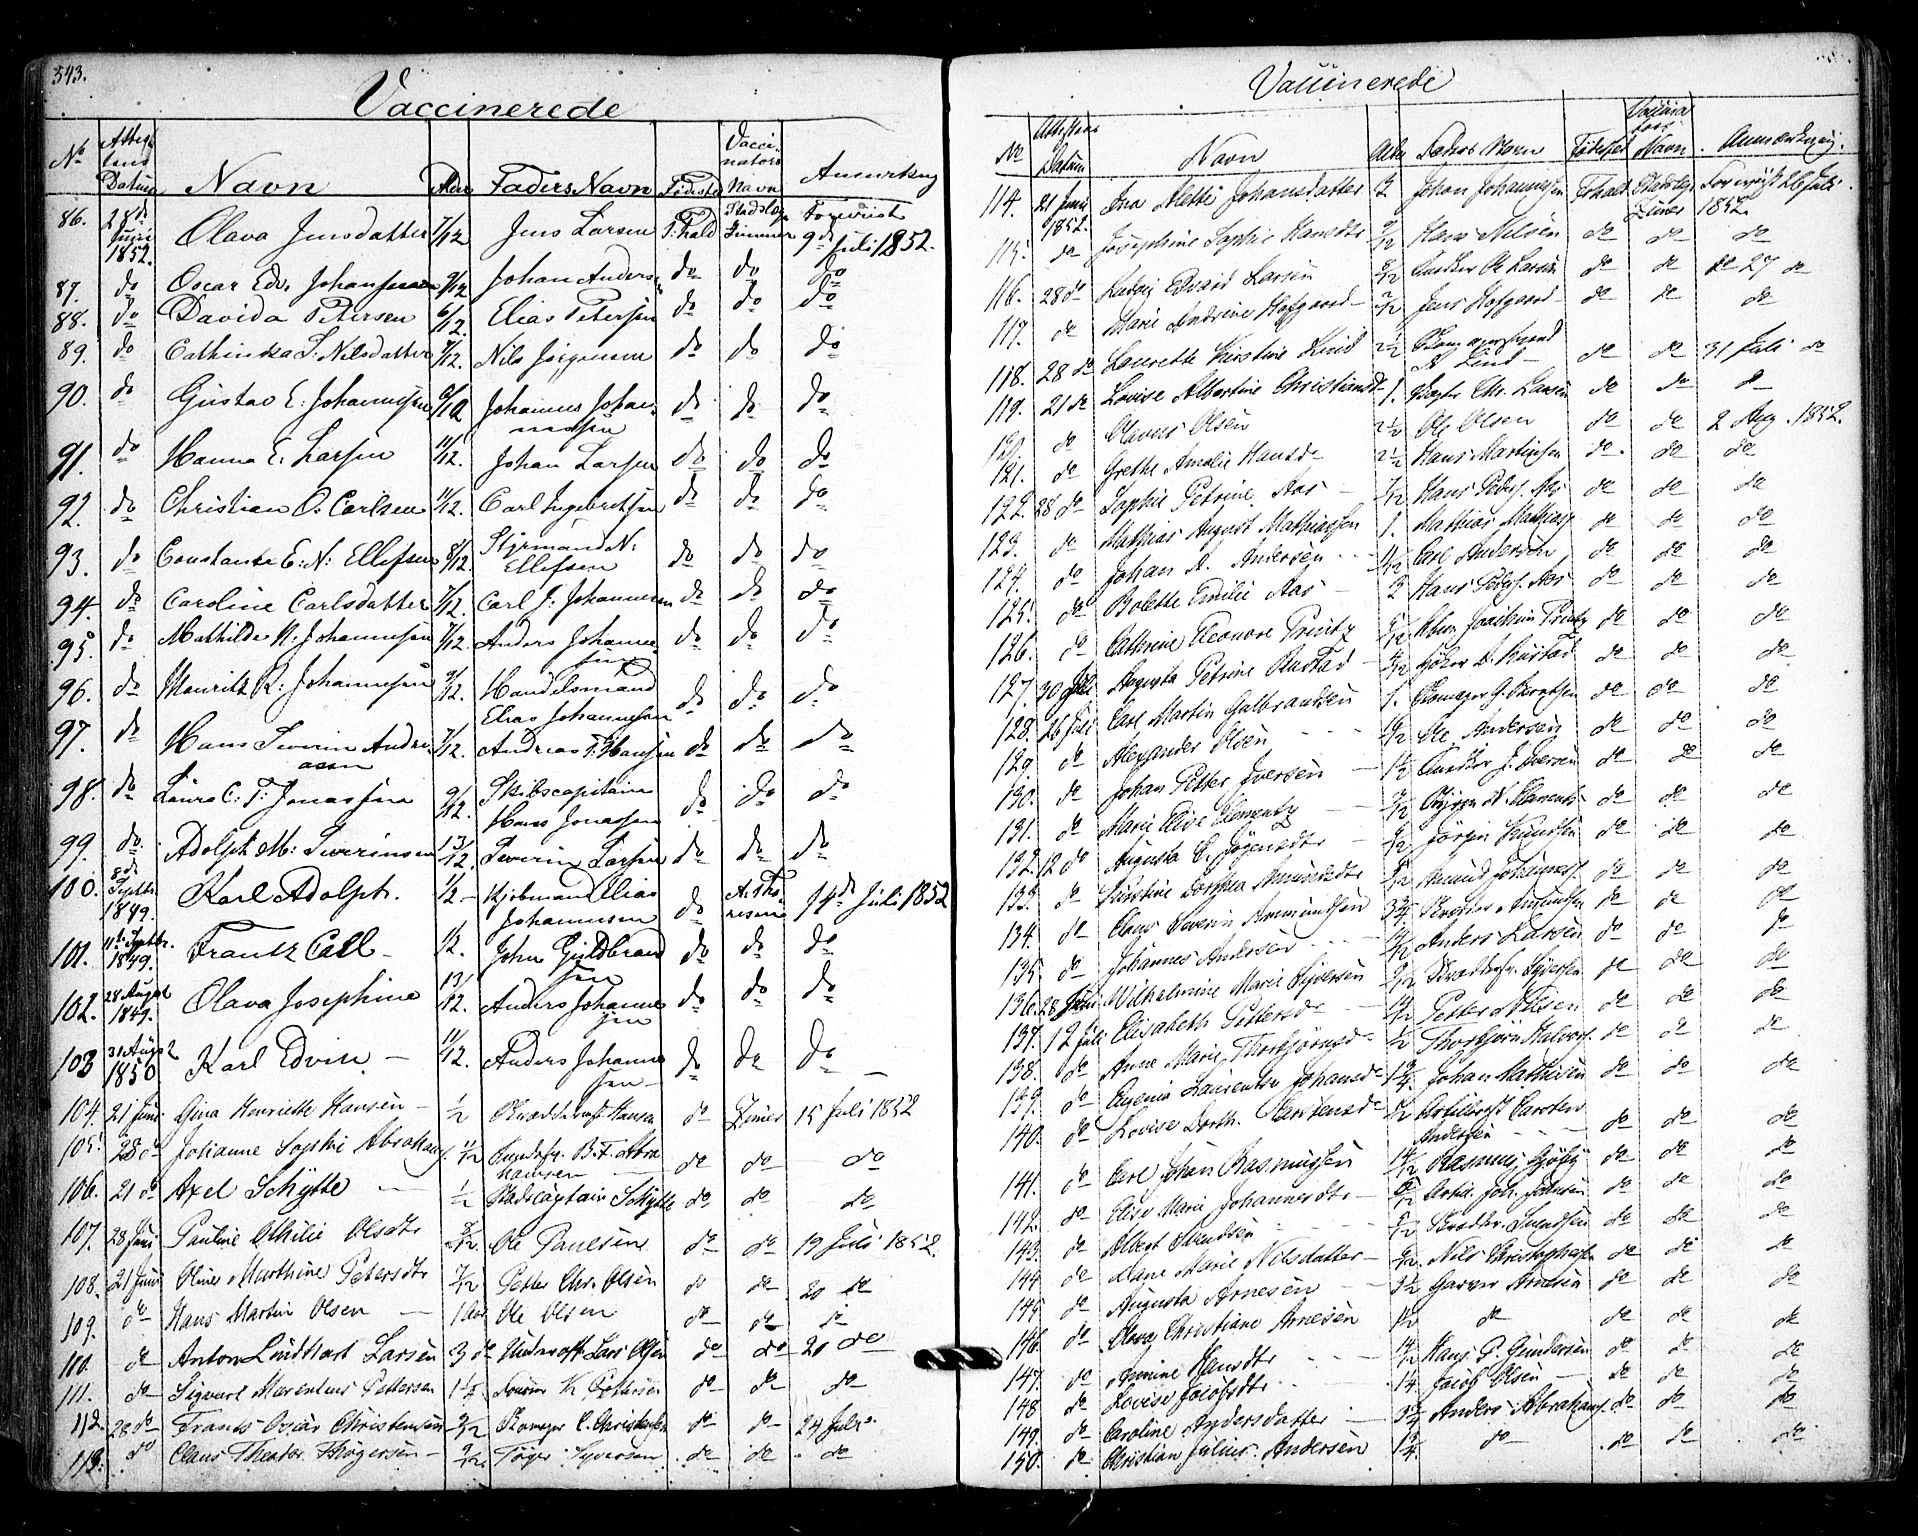 343.
Vaccinerede
No Attestens Datum Navn Alder Faders Navn Fødested Vaccinators Navn Anmerkning
86. 28de Juni 1852. Olava Jensdatter 7/12 Jens Larsen F:hald Stadslæge Zimmer Forevist 9de Juli 1852.
87. do Oscar Edv. Johansen 9/12 Johan Anders. do do do
88. do Davida Petersen 6/12. Elias Petersen do do do
89. do Cathinka S. Nilsdatter 7/12. Nils Jørgensen do do do
90. do Gustav E. Johannesen Johannes Johannessen do do do
91. do Hanna E. Larsen 11/12. Johan Larsen do do do
92. do Christian O. Carlsen 11/12. Carl Ingebretsen do do do
93. do Constance E: N: Ellefsen 8/12 Styrmand N: Ellefsen do do do
94. do Caroline Carlsdatter 7/12. Carl J. Johannesen do do do
95. do Mathilde N. Johannesen 7/12 Anders Johannesen do do do
96. do Mauritz R. Johannesen 9/12. Handelsmand Elias Johannesen do do do
97. do Hans Severin Andreasen 7/12. Andreas F. Hansen do do do
98. do Laura C. F. Jonassen 9/12. Skibscapitain Hans Jonassen do do do
99. do Adolph M: Severinsen 13/12. Severin Larsen do do do
100. 8de Septbr. 1849. Karl Adolph. 1/2 Kjøbmand Elias Johannesen do A. Thoresen 14de Juli 1852
101. 11te Septbr. 1849. Frantz Call 1/2. John Guldbrandsen do do do
102. 28 August 1849. Olava Josephine 13/12 Anders Johannesen do do do
103 31 August 1850 Karl Edvin 11/12. Anders Johannesen do do do
104. 21 Juni Gina Henriette Hansen 1/2 Hansen do Zimer 15 Juli 1852
105. 28 do Johanne Sophie Abrahams. 1 1/2 B. F. Abrahamsen do do do
106. 21 do Axel Schytte 1/2 Schytte do do do
107. 28 Juni Pauline Othilie Olsdtr Ole Paulsen do do 19 Juli 1852.
108. 21 Juni Oline Marthine Petersdtr 7/12 Petter Chr. Olsen do do 20 do
109. do Hans Martin Olsen 1 Aar Ole Olsen do do do
110. do Anton Lindthart Larsen 3 do Underoff. Lars Olsen do do 20 do
111. do Sigvart Marentius Pettersen K. Pettersen do do do
112. 28 do Frants Oscar Christensen 9/12 Skomager C. Christensen do do 24 Juli
113. do Claus Theodor Thøgersen 9/12 Tøger Syversen do do do
Vaccinerede
No Attestens Datum Navn Alder Faders Navn Fødested Vaccinators Navn Anmerkning.
114. 21 Juni 1852. Ina Alette Johansdatter Johan Johannesen F:hald Stadslæge Zimer Forevist 26 Juli 1852.
115. do Josephine Sophie Hansdtr 9/12 Hans Nilsen do do do
116. 28 do Ludvig Edvard Larsen 8/12 Ole Larsen do do do 27 do
117. do Marie Andrine Hofgaard Jens Hofgaard do do do
118. 28 do Laurette Kirstine Lind 2 1/2 Lind do do 31 Juli do
119. 21 do Lovise Albertine Christiansdtr 1. Chr. Larsen do do do
120. do Olavus Olsen 2 1/2 Ole Olsen do do 2 Aug. 1852.
121. do Grethe Amalie Hansdr 2 1/2 Hans Martinsen do do do
122. 28 do Sophie Petrine Aas 7/12 Hans Peders. Aas do do do
123. do Mathias August Mathiassen 1. Mathias Mathias. do do do
124. do Johan A. Andersen 11/12 Carl Andersen do do do
125. do Bolette Emilie Aas Hans Peders. Aas do do do
126. do Cathrine Eleonore Printz Joachim Printz do do do
127. 30 Juli Augusta Petrine Rustad Rustad do do do
128. 26 Juli Carl Martin Gulbrandsen 1. Skomager G. Berntsen do do do
129. do Alexander Olsen Ole Andersen do do do
130. do Johan Petter Iversen 1 1/2 J. Iversen do do do
131. do Marie Elise Clementz Clementz do do do
132. 12 do Augusta C. Jørgensdtr 9/12 Jørgen Knudsen do do do
133. do Kirstine Dorthea Amundsdtr Amund Johannes. do do do
134. do Claus Severin Ammundsen 3 3/4 Amundsen do do do
135. do Johannes Andersen Anders Larsen do do do
136. 28 Juni Wilhelmine Marie Syversen 9/12 Syversen do do do
137. 12 Juli Elisabeth Pettersdr Petter Nilsen do do do
138. do Anne Marie Thorbjørnsdr Thorbjørn Halvors. do do do
139. do Eugenia Laurentse Johansdr 1 3/4. Johan Mathisen do do do
140. do Lovise Dorth. Carstensdr Carsten Andersen do do do
141. do Carl Johan Rasmussen Rasmus do do do
142. do Elise Marie Johannesdtr Joh. Johnsen do do do
143. do Albert Svendsen Svendsen do do do
144. do Marie Nilsdatter Nils Christophersen do do do
145. do Augusta Arnesen 3 1/2 Garver Arnesen do do do
146. do Olava Christiane Arnesen 1 1/2 do do do do
147. do Annine Hansdtr Hans P. Gundersen do do do
148 do Lovise Jacobsdtr Jacob Olsen do do do
149. do Caroline Andersdatter 3 3/4 Anders Abrahams. do do do
150. do Christian Julius Andersen 1 3/4. do do do do